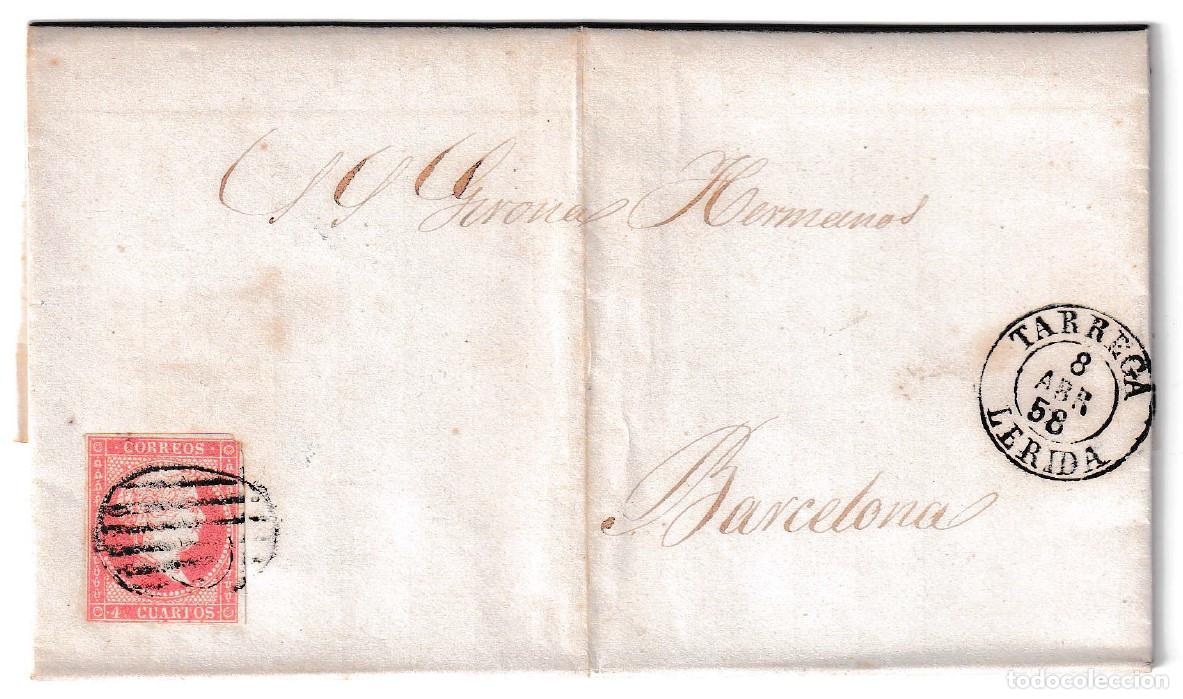 SS Girona Hermanos
TARREGA
8
ABR
58
LERIDA
Barcelona
CORREOS
4 CUARTOS
todocoleccion